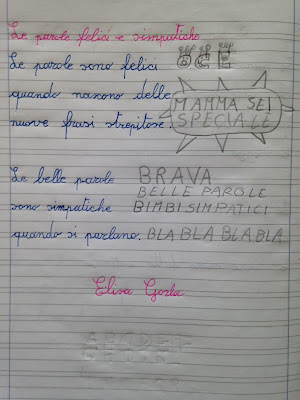 Le parole felici e simpatiche
Le parole sono felici O C E
quando nascono delle MAMMA SEI
nuove frasi strepitose. SPECIALE
Le belle parole BRAVA
BELLE PAROLE
sono simpatiche BIMBI SIMPATICI
quando si parlano. BLA BLA BLA BLA
Elisa Gorla